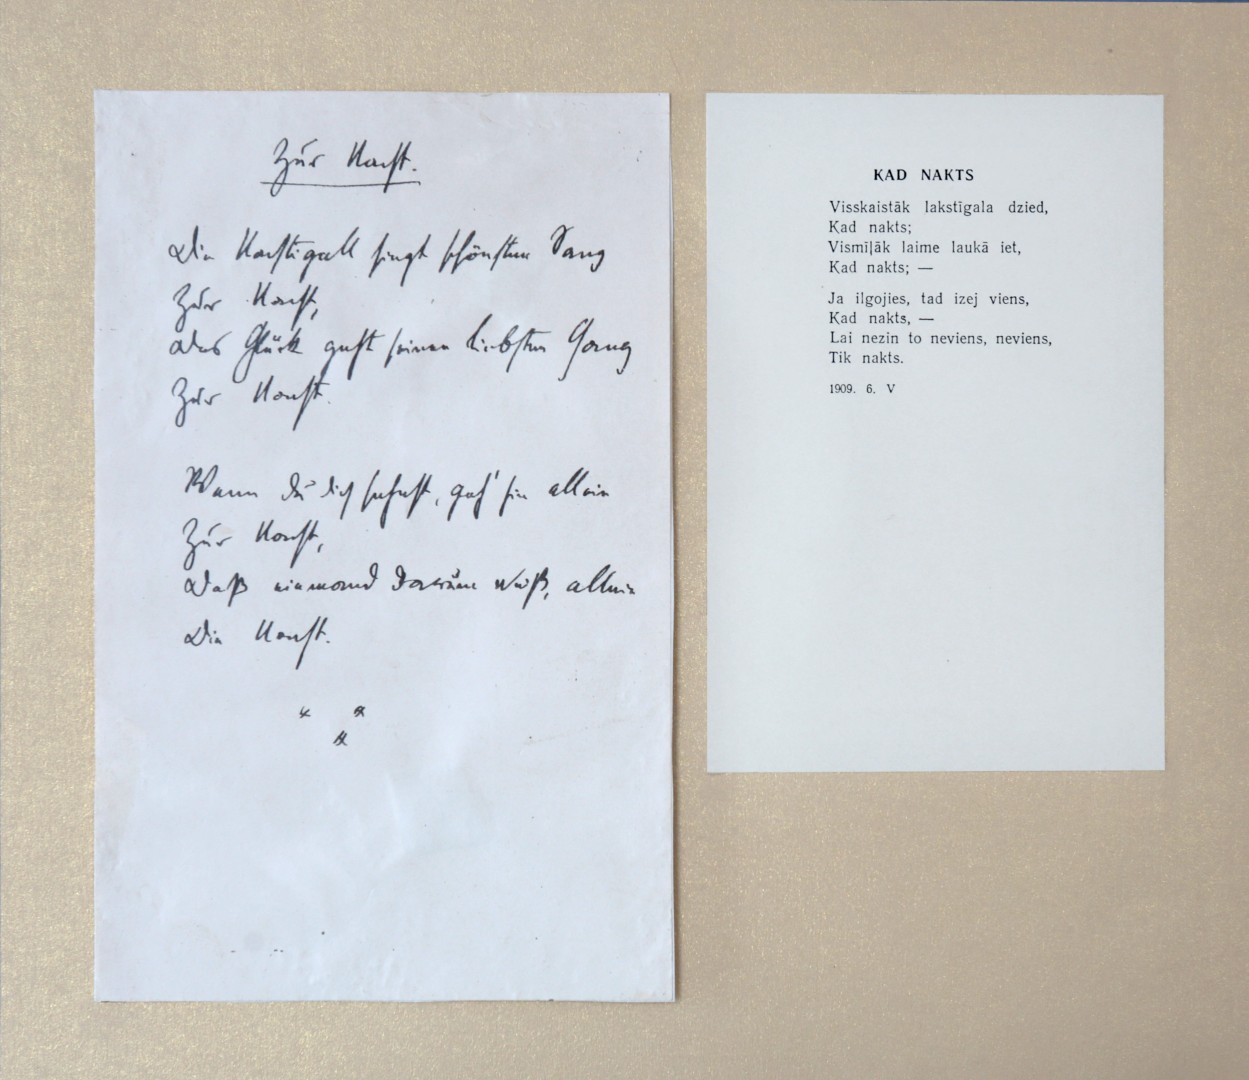 Zur Nacht.
Die Nachtigall singt schönsten Sang
Zur Nacht,
Das Glück geht seinen liebsten Gang
Zur Nacht.
Wenn du dich sehnst, geh' hin allein
Zur Nacht,
Daß niemand darum weiß, allein
Die Nacht.
KAD NAKTS
Visskaistāk lakstīgala dzied,
Kad nakts;
Vismīļāk laime laukā iet,
Kad nakts; —
Ja ilgojies, tad izej viens,
Kad nakts, —
Lai nezin to neviens, neviens,
Tik nakts.
1909. 6. V